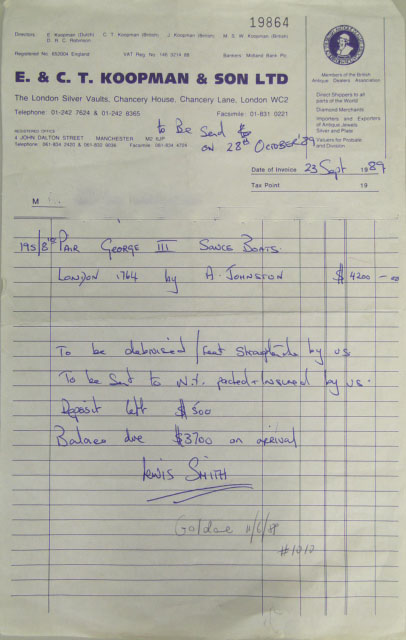 19864
Directors: E. Koopman (Dutch) C. T. Koopman (British) J. Koopman (British) M. S. W. Koopman (British)
D. R. C. Robinson
Registered No. 652004 England VAT Reg. No. 145 3214 68 Bankers: Midland Bank Plc.
E. & C. T. KOOPMAN & SON LTD
The London Silver Vaults, Chancery House, Chancery Lane, London WC2
Telephone 01-242 7624 & 01-242 8365 Facsimile 01-831 0221
REGISTERED OFFICE
4 JOHN DALTON STREET MANCHESTER M2 6JP
Telephone 061-834 2420 & 061-832 9036 Facsimile 061-834
Members of the British
Antique Dealers Association
Direct Shippers to all
parts of the World
Diamond Merchants
Importers and Exporters
of Antique Jewels
Silver and Plate
Valuers for Probate
and Division
to Be Send
on 28th October 89
Date of Invoice 23 Sept 1989
Tax Point 19
M
195/8 Pair George III Sauce Boats
London 1764 by A. Johnston $ 4200 - 00
To be debruised / feet by us
To be Sent to N.Y. packed + Insured by us.
Deposit left $ 500
Balance due $3700 on arrival
Lewis Smith
11/6/89
#1010